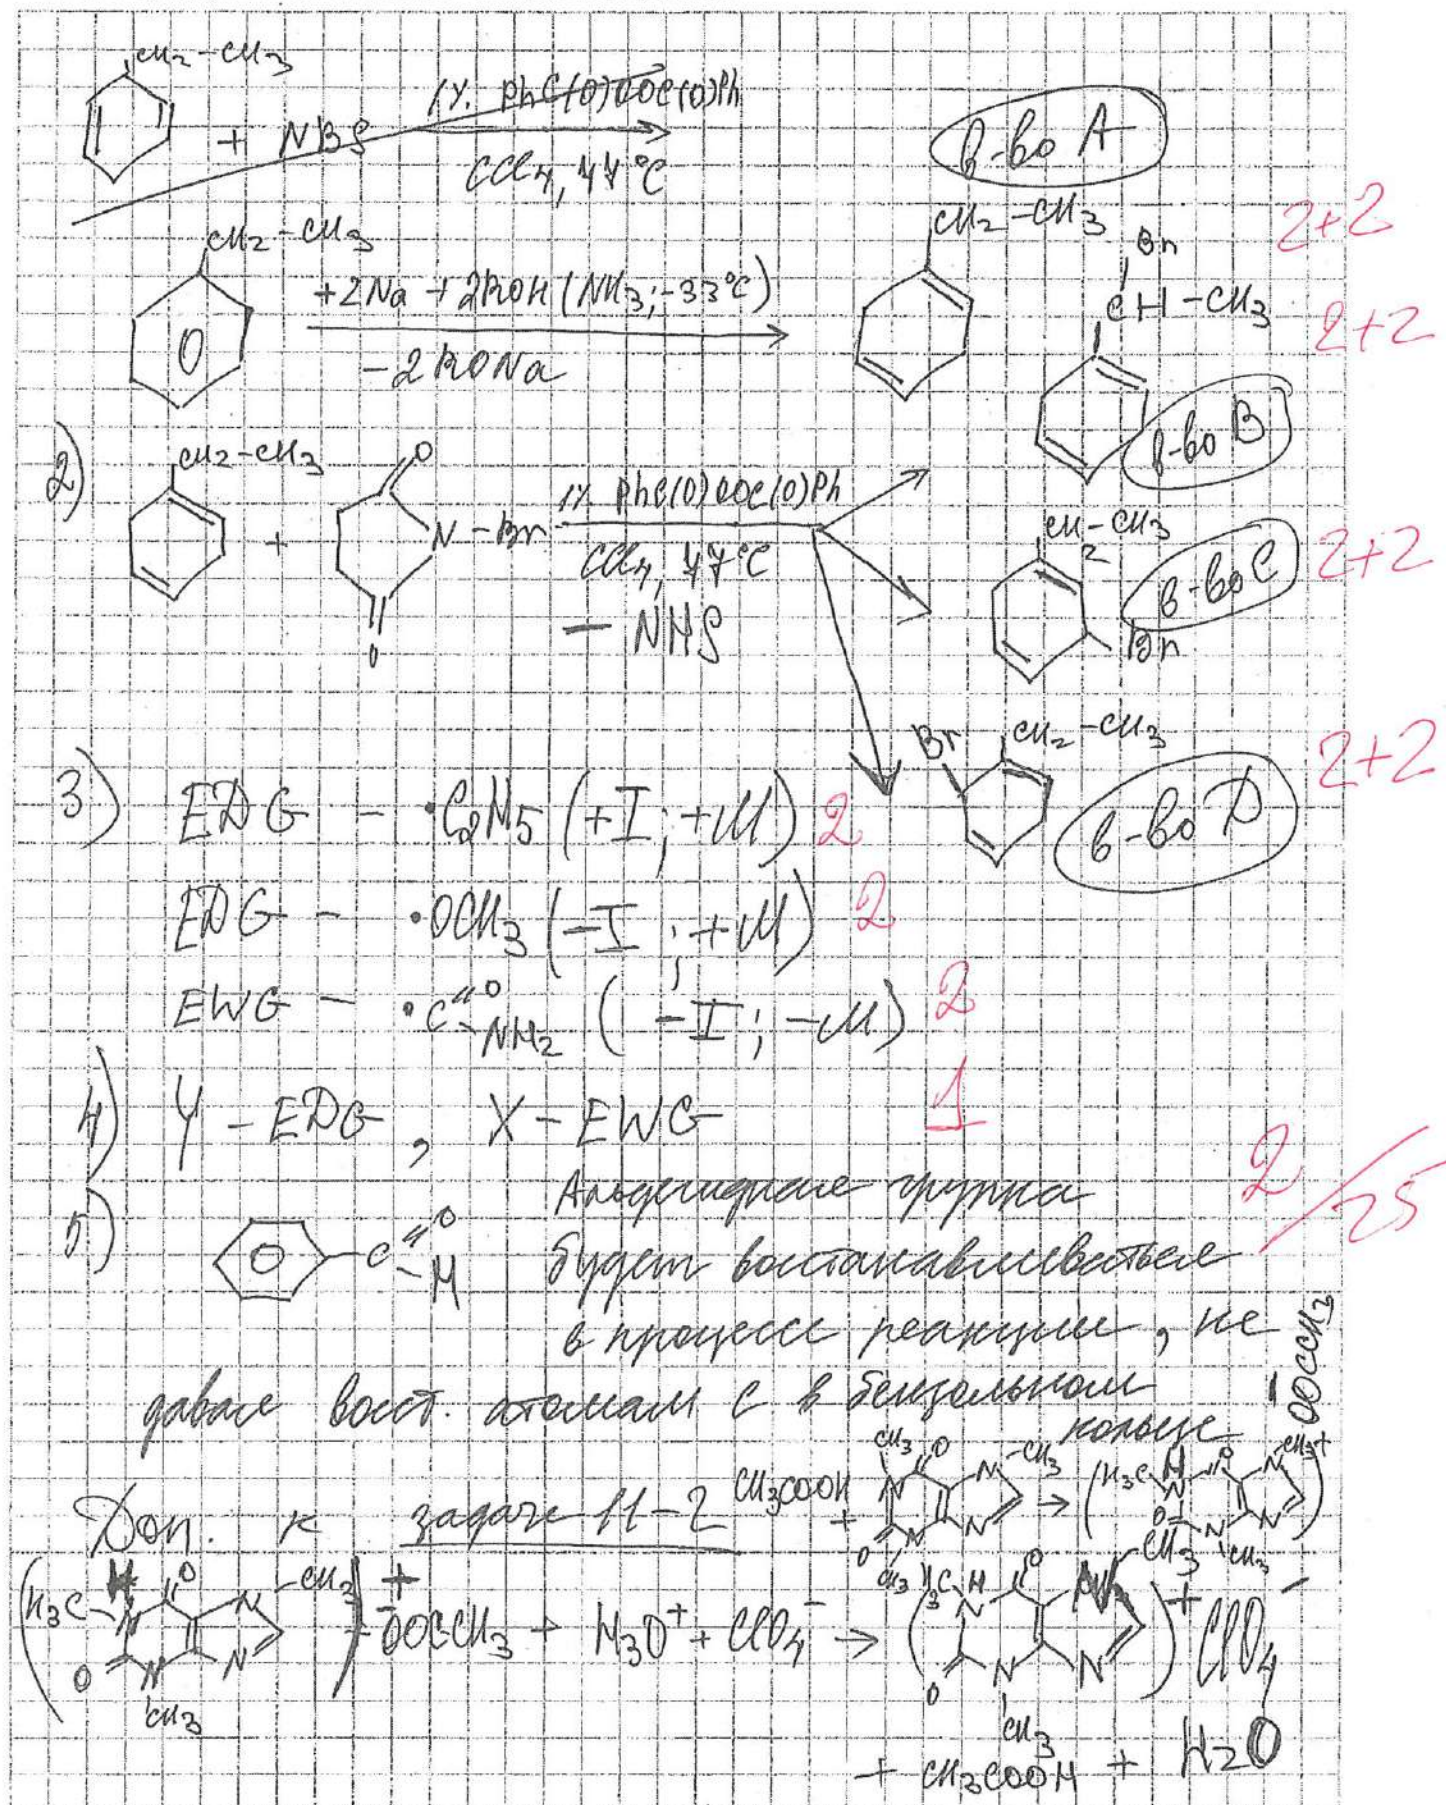 CH₂-CH₃
+ NBS
1%. PhC(O)OOC(O)Ph
CCl₄, 77°C
в-во A
CH₂-CH₃
+2Na +2ROH (NH₃; -33°C)
-2RONa
CH₂-CH₃
2+2
Br
CH-CH₃
2+2
в-во B
2)
CH₂-CH₃
+
O
N-Br
O
1%. PhC(O)OOC(O)Ph
CCl₄, 77°C
- NHS
CH₂-CH₃
Br
в-во C
2+2
Br
CH₂-CH₃
в-во D
2+2
3) EDG - ·C₂H₅ (+I; +M) 2
EDG - ·OCH₃ (-I; +M) 2
EWG - ·C=O NH₂ (-I; -M) 2
4) Y - EDG, X - EWG 1
5) C=O -H
Альдегидная группа
будет восстанавливаться
в процессе реакции, не
давая восст. атомам C в бензольном
кольце
2/25
Доп. к задаче 11-2
CH₃COOH + CH₃ N O N -CH₃ N O N CH₃ → (H₃C N H O N -CH₃ O N N CH₃)⁺ ⁻OOCCH₃
(H₃C N H O N -CH₃ O N N CH₃)⁺ ⁻OOCCH₃ + H₃O⁺ + ClO₄⁻ → (H₃C N H O N CH₃ O N N CH₃)⁺ ClO₄⁻
+ CH₃COOH + H₂O